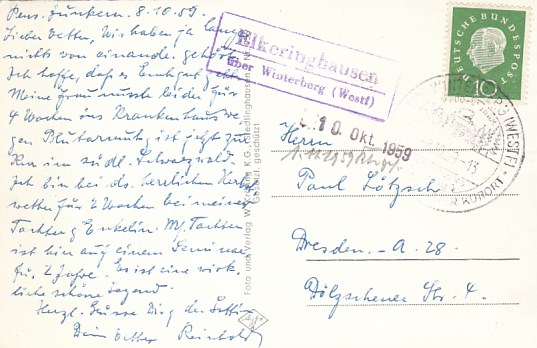 Pens. Junkern. 8.10.59.
Lieber Vetter, Wir haben ja lange
nichts von einander gehört.
Ich hoffe, daß es Euch gut geht.
Meine Frau musste leider für
4 Wochen ins Krankenhaus we-
gen Blutarmut ist jetzt zur
Kur im südl. Schwarzwald.
Ich bin bei ds. herrlichen Herbst-
wetter für 2 Wochen bei meiner
Tochter & Enkelin. M/ Tochter
ist hier auf einem Seminar
für 2 Jahre. Es ist eine wirk-
liche schöne Gegend.
Herzl. Grüsse Dir
Dein Vetter Reinhold
Foto und Verlag W. K.G. Siedlinghausen
Gesetzl. geschützt
Elkeringhausen
über Winterberg (Westf)
DEUTSCHE BUNDESPOST
10
WINTERBERG (WESTF)
KURORT
10. Okt. 1959
Herrn
Paul Lötzsch
Dresden-A. 28
Dölzschener Str. 4.